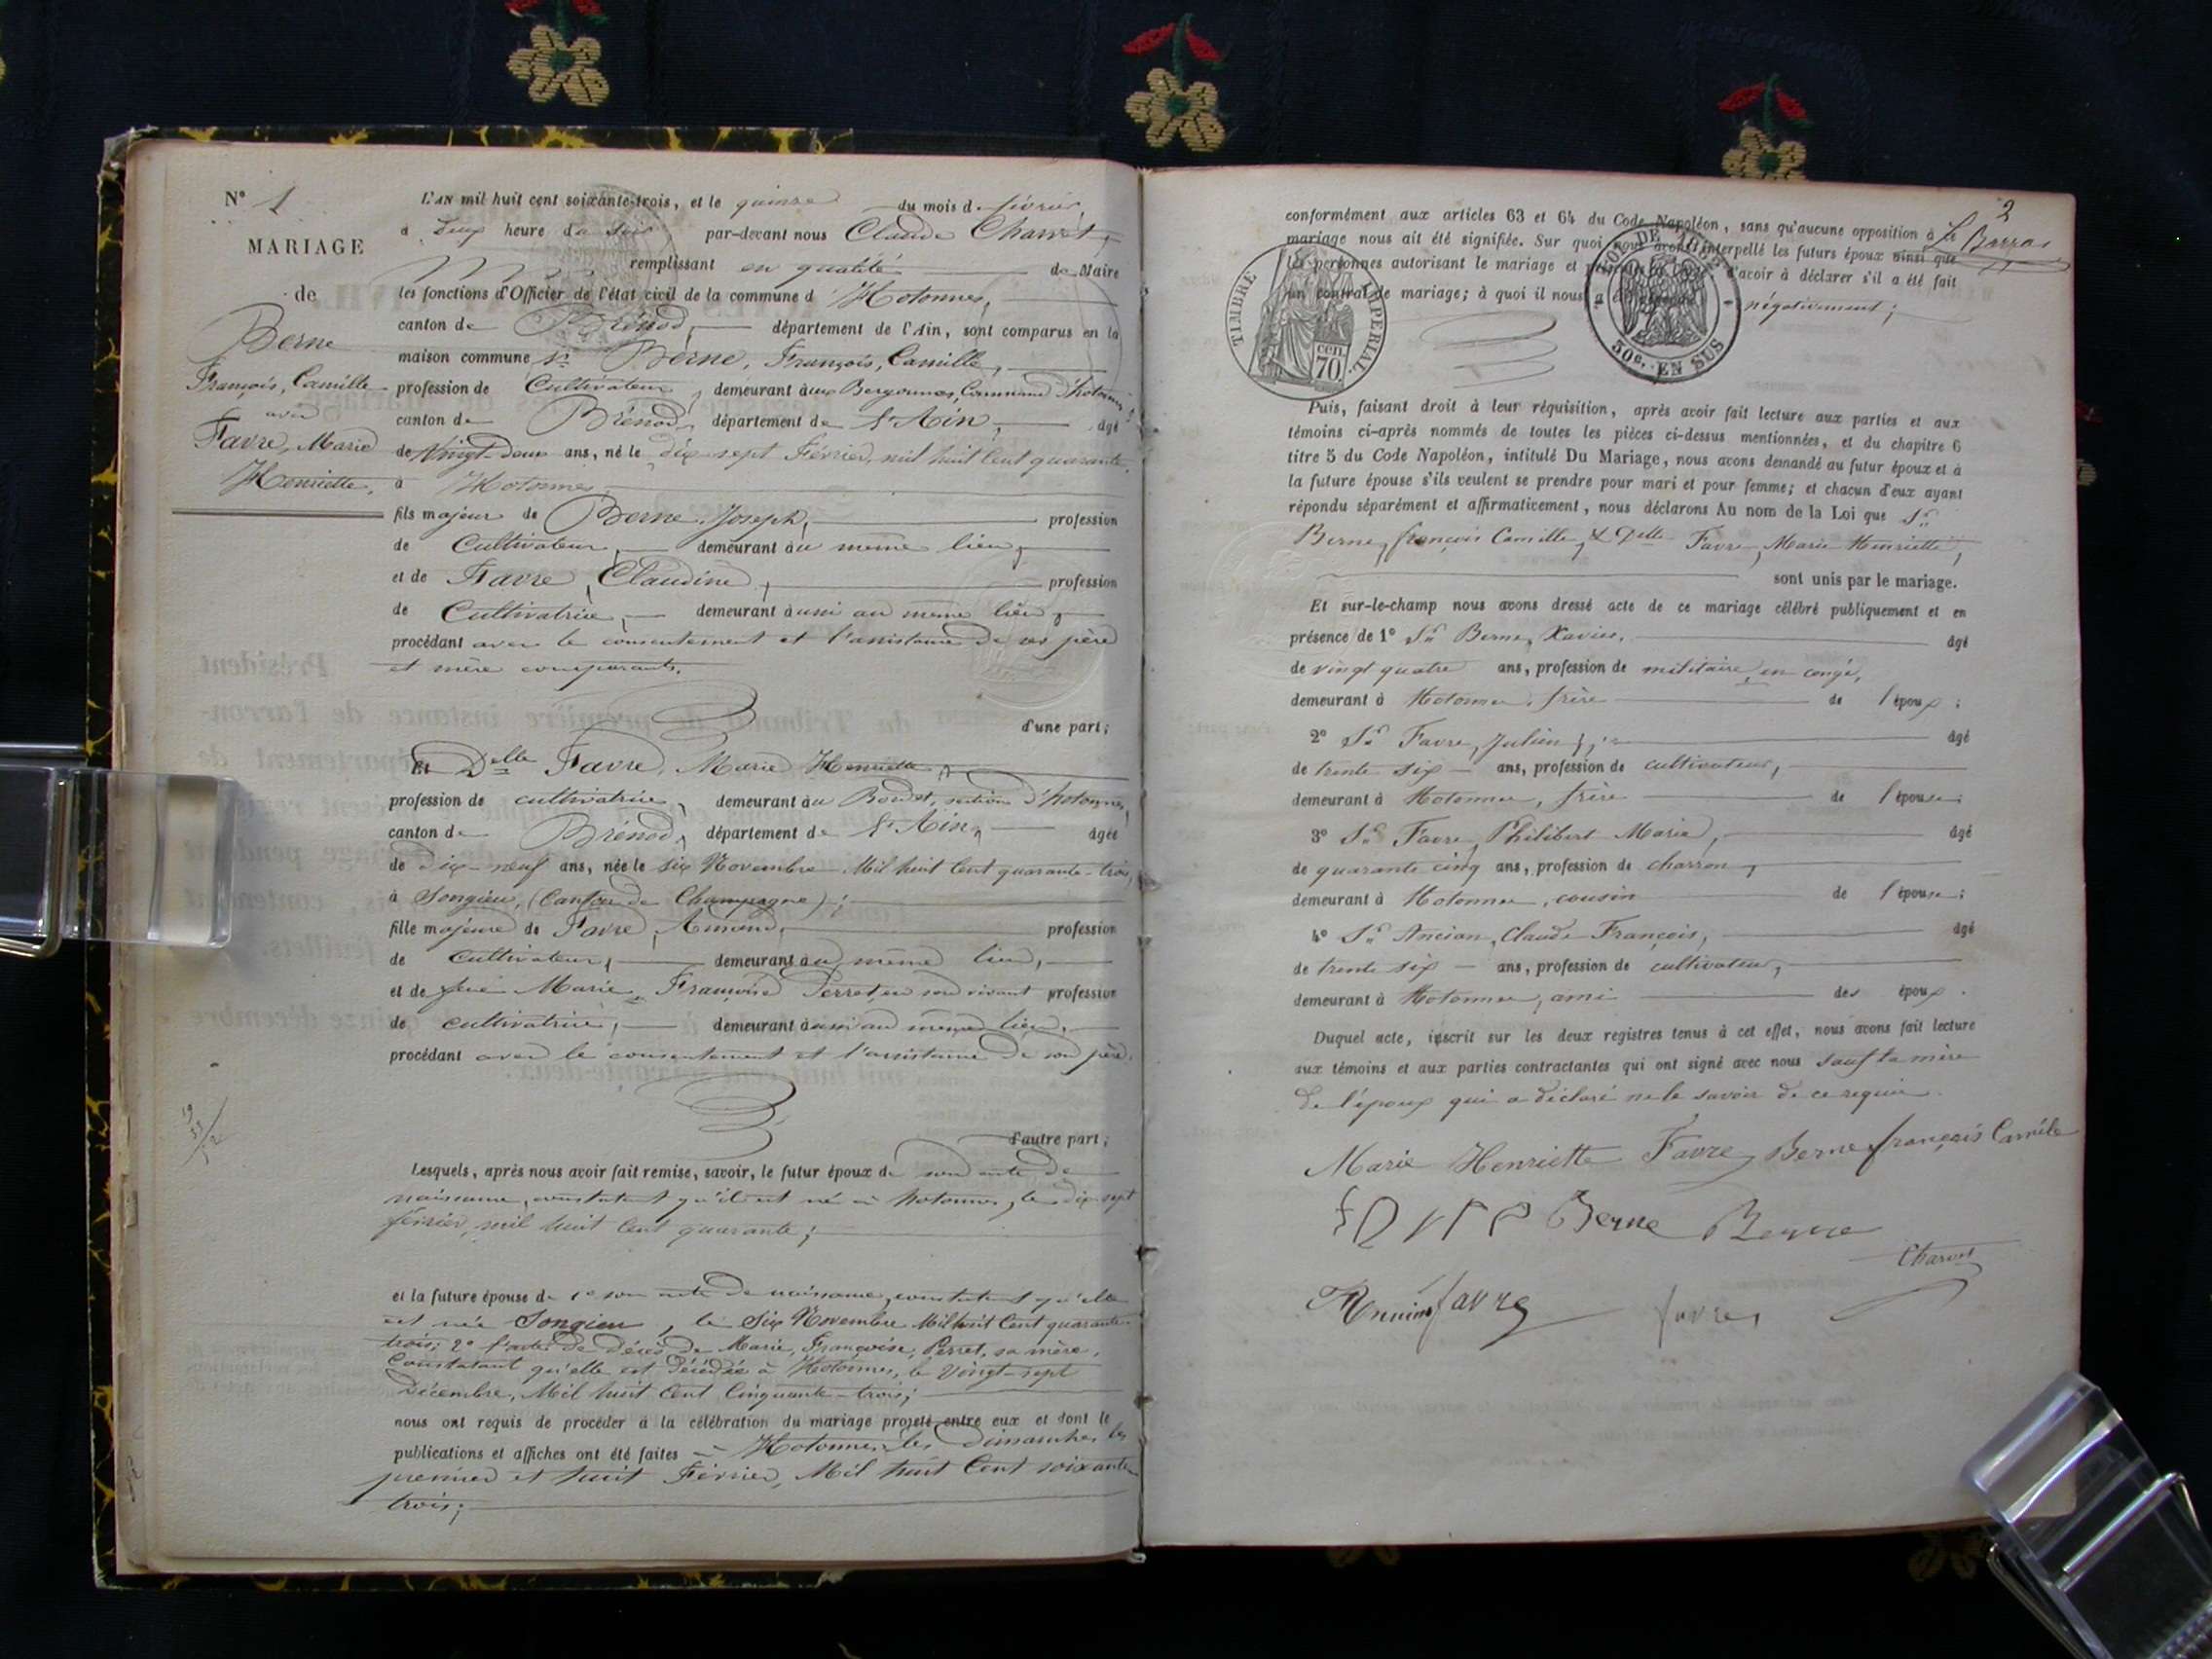 N° 1
MARIAGE
de
Berne
François, Camille
avec
Favre, Marie
Henriette,
L'AN mil huit cent soixante-trois, et le quinze du mois de février,
à deux heure du soir par-devant nous Claude Charvet,
remplissant en qualité de Maire
les fonctions d'Officier de l'état civil de la commune d'Hotonnes,
canton de Brénod, département de l'Ain, sont comparus en la
maison commune Sr Berne, François, Camille,
profession de Cultivateur, demeurant aux Bergounes, Commune d'hotonnes,
canton de Brénod, département de l'Ain, âgé
de Vingt-deux ans, né le dix sept Février, mil huit cent quarante,
à Hotonnes,
fils majeur de Berne, Joseph, profession
de Cultivateur, demeurant au même lieu,
et de Favre, Claudine, profession
de Cultivatrice, demeurant aussi au même lieu,
procédant avec le consentement et l'assistance de ses père
et mère comparants.
d'une part;
Et Delle Favre, Marie Henriette,
profession de cultivatrice, demeurant au Bordet, section d'hotonnes,
canton de Brénod, département de l'Ain, âgée
de dix-neuf ans, née le six Novembre Mil huit Cent quarante-trois,
à Songieu, (Canton de Champagne);
fille majeure de Favre, Armand, profession
de Cultivateur, demeurant au même lieu,
et de feue Marie Françoise Perret, en son vivant profession
de cultivatrice, demeurant aussi au même lieu,
procédant avec le consentement et l'assistance de son père.
d'autre part;
Lesquels, après nous avoir fait remise, savoir, le futur époux de son acte de
naissance, constatant qu'il est né à hotonnes, le dix-sept
février, mil huit Cent quarante;
et la future épouse de 1° son acte de naissance, constatant qu'elle
est née Songieu, le Six Novembre Mil huit Cent quarante-
trois; 2° l'acte de décès de Marie, Françoise, Perret, sa mère,
Constatant qu'elle est décédée à Hotonnes, le Vingt-sept
Décembre, Mil huit Cent Cinquante-trois;
nous ont requis de procéder à la célébration du mariage projeté entre eux et dont les
publications et affiches ont été faites à Hotonnes, les dimanches les
premier et huit Février, Mil huit Cent soixante
trois;
2
conformément aux articles 63 et 64 du Code Napoléon, sans qu'aucune opposition à ce
mariage nous ait été signifiée. Sur quoi nous avons interpellé les futurs époux ainsi que
les personnes autorisant le mariage et d'avoir à déclarer s'il a été fait
un contrat de mariage; à quoi il nous a été négativement;
TIMBRE IMPERIAL
CEN. 70
50c. EN SUS
Puis, faisant droit à leur réquisition, après avoir fait lecture aux parties et aux
témoins ci-après nommés de toutes les pièces ci-dessus mentionnées, et du chapitre 6
titre 5 du Code Napoléon, intitulé Du Mariage, nous avons demandé au futur époux et à
la future épouse s'ils veulent se prendre pour mari et pour femme; et chacun d'eux ayant
répondu séparément et affirmativement, nous déclarons Au nom de la Loi que Sr
Berne, françois Camille, & Delle Favre, Marie Henriette,
sont unis par le mariage.
Et sur-le-champ nous avons dressé acte de ce mariage célébré publiquement et en
présence de 1° Sr Berne, Xavier, âgé
de vingt quatre ans, profession de militaire, en congé,
demeurant à Hotonnes, frère de l'époux;
2° Sr Favre, Julien, âgé
de trente six ans, profession de cultivateur,
demeurant à Hotonnes, frère de l'épouse;
3° Sr Favre, Philibert Marie, âgé
de quarante cinq ans, profession de charron,
demeurant à Hotonnes, cousin de l'épouse;
4° Sr Ancian, Claude François, âgé
de trente six ans, profession de cultivateur,
demeurant à Hotonnes, ami des époux.
Duquel acte, inscrit sur les deux registres tenus à cet effet, nous avons fait lecture
aux témoins et aux parties contractantes qui ont signé avec nous sauf la mère
de l'époux qui a déclaré ne le savoir de ce requise.
Marie Henriette Favre Berne françois Camile
Berne Berne
Charvet
favre favre